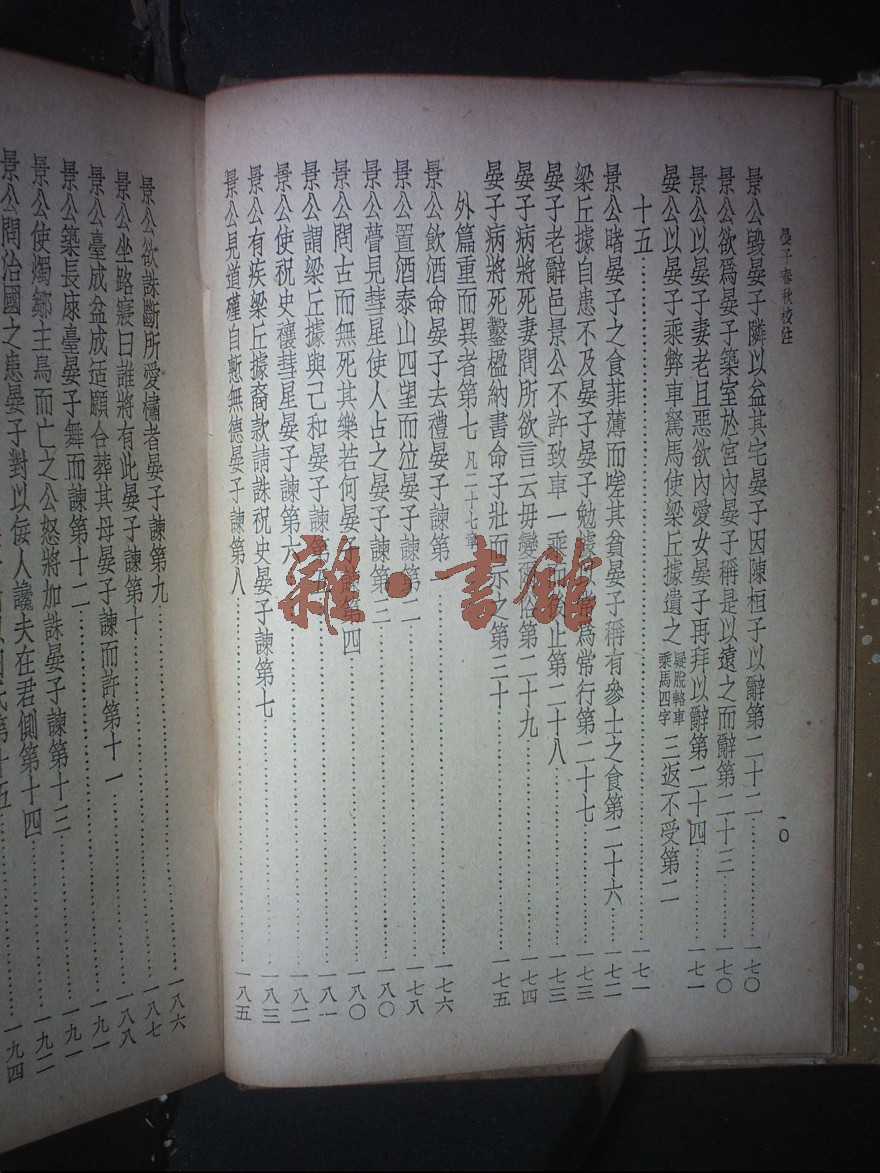 晏子春秋校注
一〇
景公毀晏子隣以益其宅晏子因陳桓子以辭第二十二…一七〇
景公欲爲晏子築室於宮內晏子稱是以遠之而辭第二十三…一七〇
景公以晏子妻老且惡欲內愛女晏子再拜以辭第二十四…一七一
晏公以晏子乘弊車駑馬使梁丘據遺之 疑脫輅車乘馬四字 三返不受第二
十五…一七一
景公睹晏子之食菲薄而嗟其貧晏子稱有參士之食第二十六…一七二
梁丘據自患不及晏子晏子勉據以常爲常行第二十七…一七三
晏子老辭邑景公不許致車一乘而後止第二十八…一七三
晏子病將死妻問所欲言云毋變爾俗第二十九…一七四
晏子病將死鑿楹納書命子壯而示之第三十…一七五
外篇重而異者第七 凡二十七章
景公飲酒命晏子去禮晏子諫第一…一七六
景公置酒泰山四望而泣晏子諫第二…一七八
景公瞢見彗星使人占之晏子諫第三…一八〇
景公問古而無死其樂若何晏子諫第四…一八〇
景公謂梁丘據與己和晏子諫第五…一八一
景公使祝史禳彗星晏子諫第六…一八二
景公有疾梁丘據裔款請誅祝史晏子諫第七…一八三
景公見道殣自慙無德晏子諫第八…一八五
景公欲誅斷所愛橚者晏子諫第九…一八六
景公坐路寢曰誰將有此晏子諫第十…一八七
景公臺成盆成适願合葬其母晏子諫而許第十一…一八八
景公築長庲臺晏子舞而諫第十二…一九一
景公使燭鄒主鳥而亡之公怒將加誅晏子諫第十三…一九一
景公問治國之患晏子對以佞人讒夫在君側第十四…一九二
第十五…一九四
雜·書館